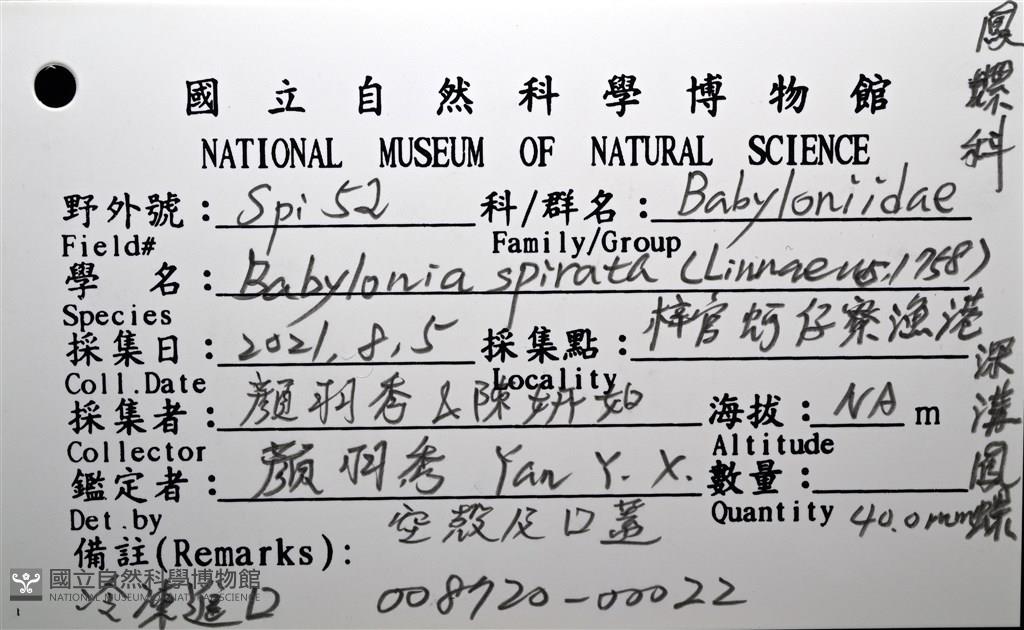 鳳螺科
國立自然科學博物館
NATIONAL MUSEUM OF NATURAL SCIENCE
野外號: Spi 52 科/群名: Babyloniidae
Field# Family/Group
學名: Babylonia spirata (Linnaeus, 1758)
Species
採集日: 2021.8.5 採集點: 梓官蚵仔寮漁港
Coll.Date Locality
採集者: 顏羽秀 & 陳妍如 海拔: NA m
Collector Altitude
鑑定者: 顏羽秀 Yan Y. X. 數量:
Det.by Quantity 40.0mm
深溝鳳螺
空殼及口蓋
備註(Remarks):
冷凍進口 008720-00022
國立自然科學博物館
NATIONAL MUSEUM OF NATURAL SCIENCE